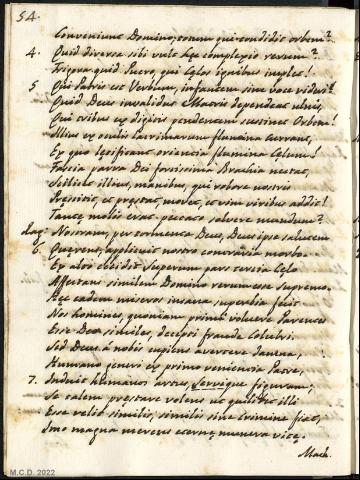 54.
Conveniunt Domino, totum qui condidit orbem?
4. Quid diversa sibi vult hęc complexio rerum?
Frigora quid Puero, qui Cęlos ignibus implet!
5 Qui Patris est Verbum, infantem sine voce videri?
Quid Deus invalidus Matris dependeat ulnis,
Qui tribus ex digitis pendentem sustinet Orbem!
Illius ex oculis lacrimarum flumina currant,
Ex quo lętificant orientia flumina Cęlum!
Fascia parva Dei fortissima Brachia nectat,
Scilicet illius, manibus, qui robora nostris
Pręstitit, et pręstat, movet, et vim viribus addit!
Tantę molis erat peccato solvere mundum?
Nostram, per tormenta Deus, Deus ipse salutem
6. Quęrens, applicuit nostro contraria morbo.
Ex alto cecidit Superum pars tertia Cęlo
Affectans similem Domino rerum esse Supremo.
Hęc eadem miseros insana superbia fecit
Nos homines, quoniam primi voluere Parentes
Esse Deo similes, decepti fraude Colubri.
Sed Deus á nobis cupiens avertere damna,
Humano generi ex primo venientia Patre,
7. Induit humanos artus, Servique figuram,
Se talem pręstare volens ut quilibet illi
Esse velit similis, similis sine crimine fiat,
Imo magna merens ęternę munera vitę.
Mach.
M.C.D. 2022